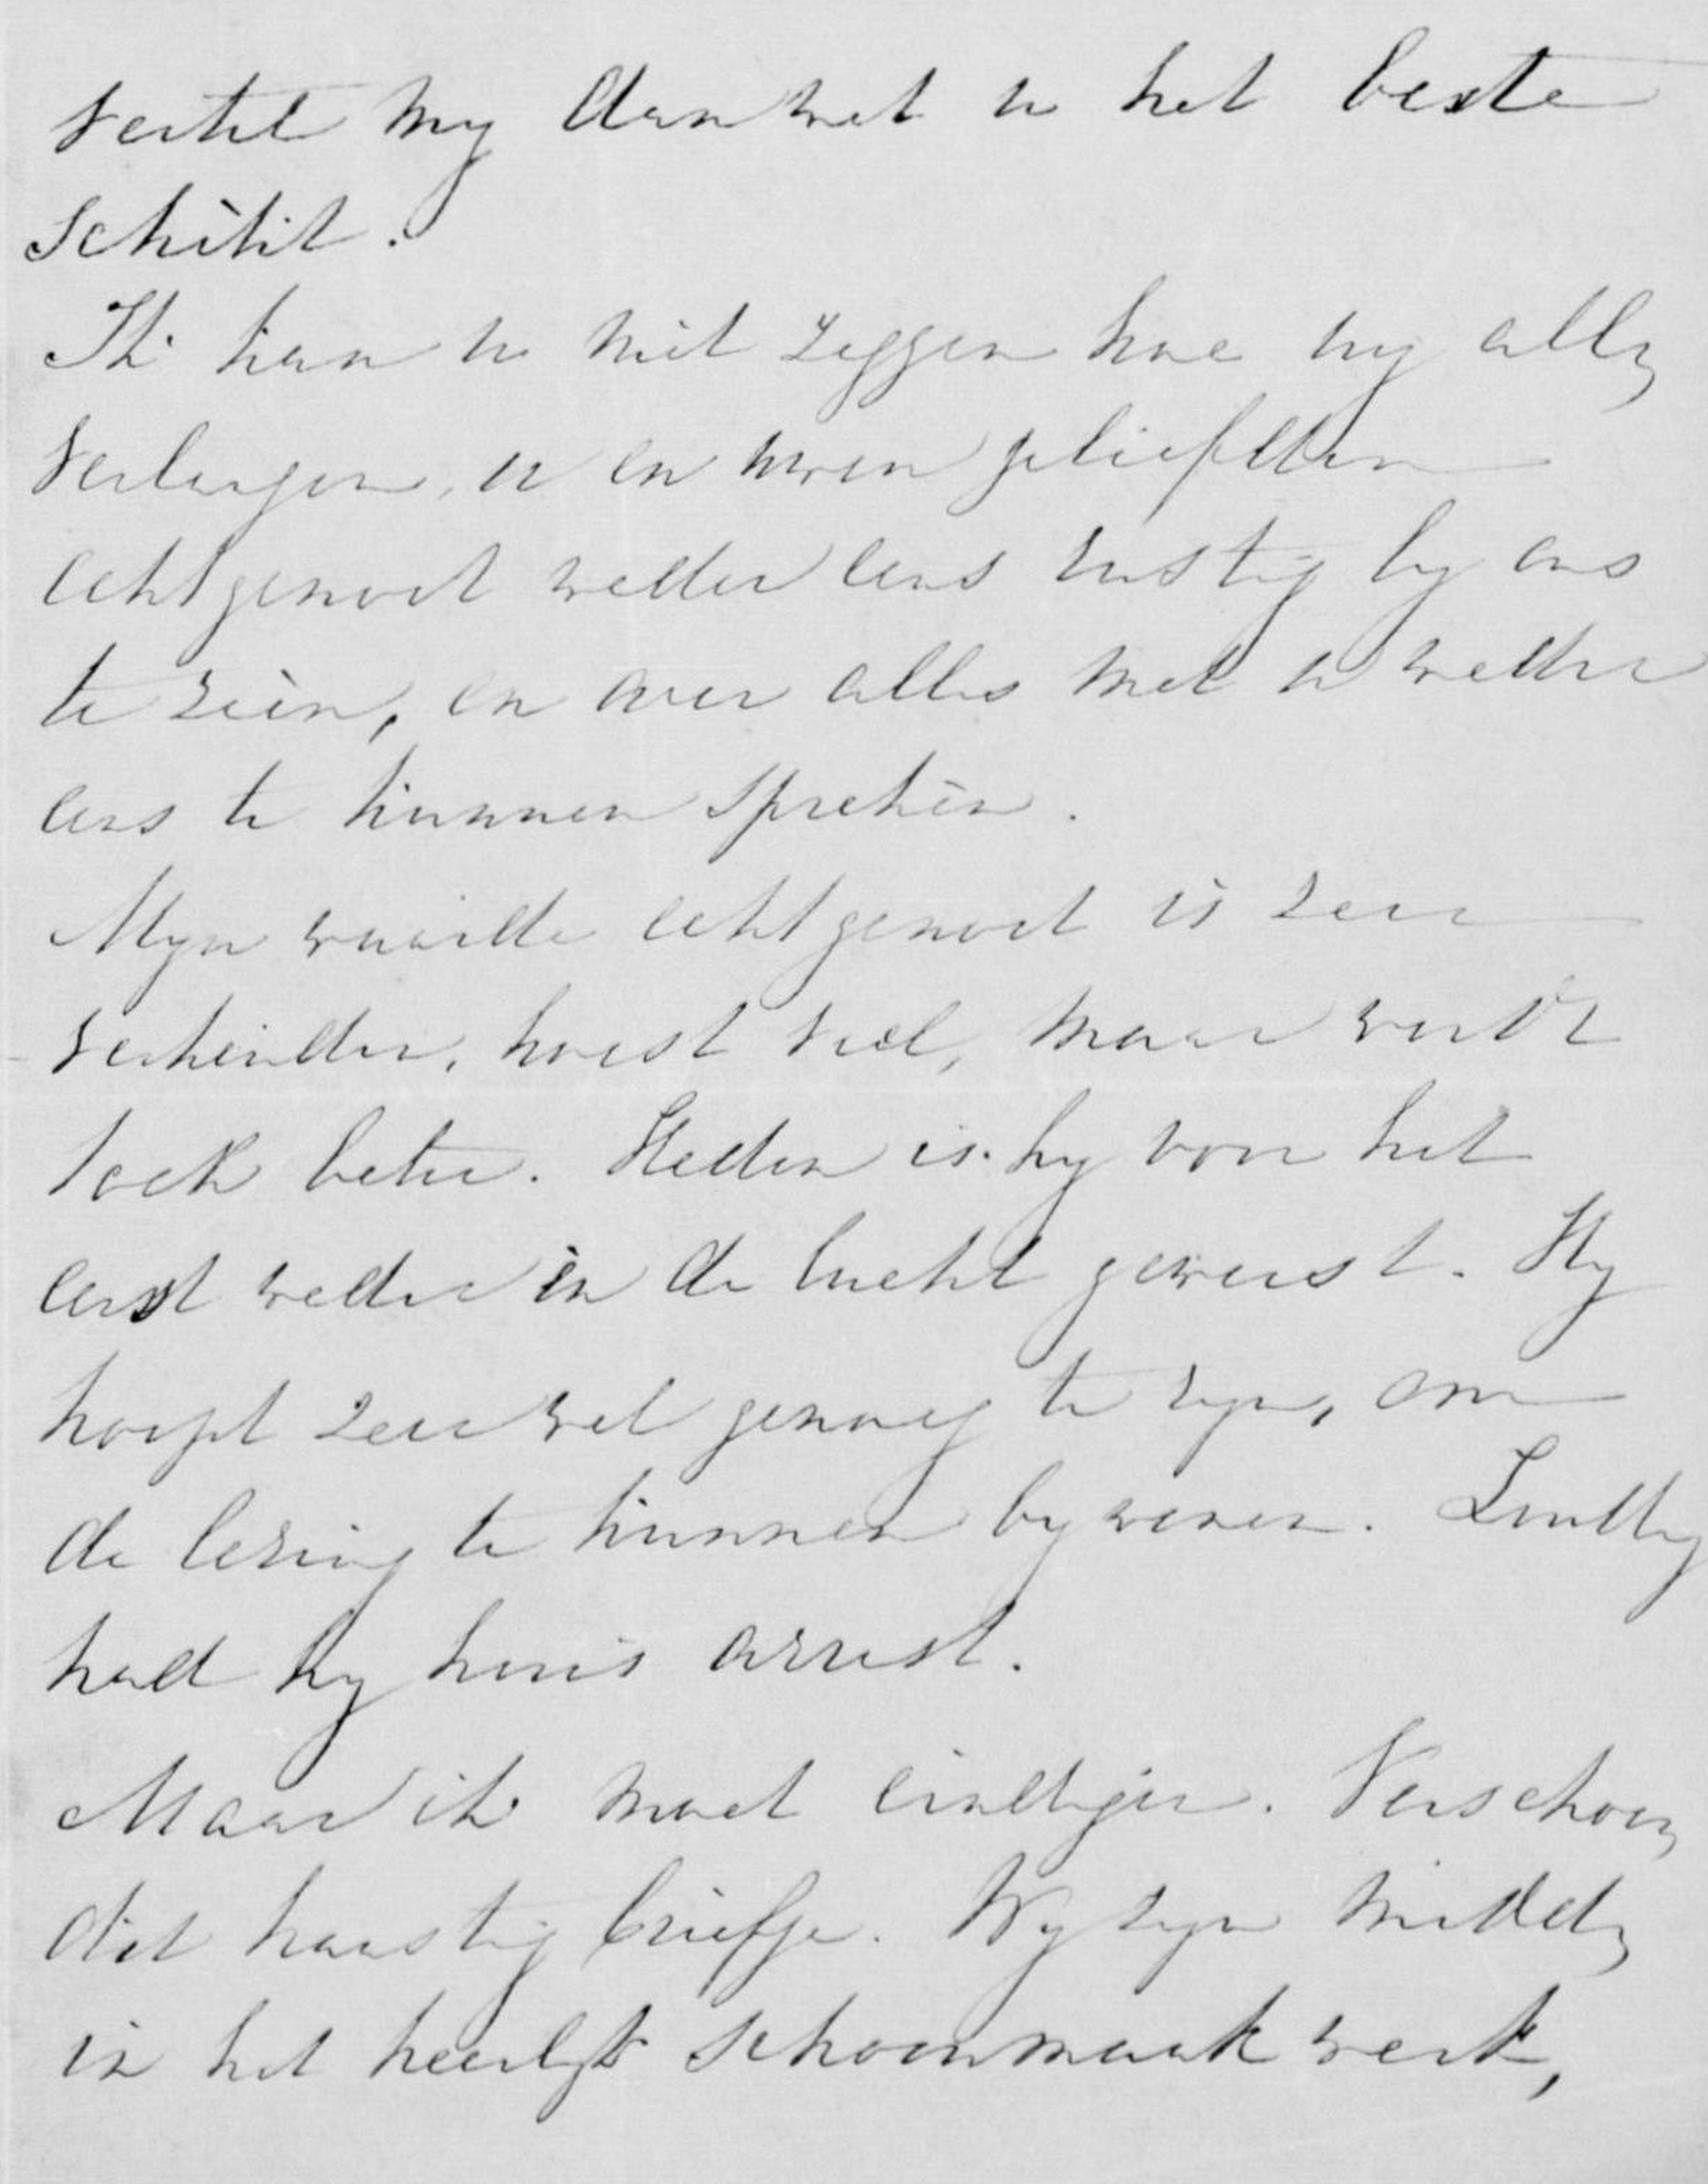 Vertel my dan wat u het beste
schikt.
Ik kan u niet zeggen hoe wy allen
verlangen, u en uwen geliefden
echtgenoot weder eens rustig by ons
te zien, en over alles met u weder
eens te kunnen spreken.
Myn waarde echtgenoot is zeer
verkouden, hoest veel, maar wordt
toch beter. Heden is hy voor het
eerst weder in de lucht geweest. Hy
hoopt zeer wel genoeg te zyn, om
de lezing te kunnen bywonen. Zondag
had hy huis arrest.
Maar ik moet eindigen. Verschoon
dit haastig briefje. Wy zyn midden
in het heerlyk schoonmaak werk,